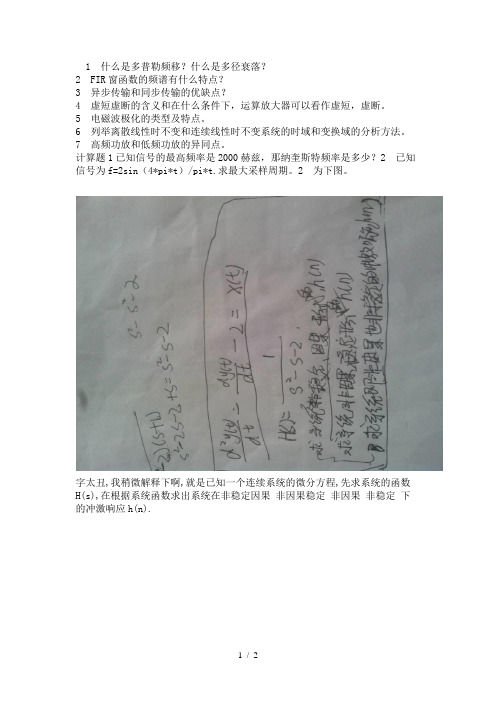 1 什么是多普勒频移？什么是多径衰落？
2 FIR窗函数的频谱有什么特点？
3 异步传输和同步传输的优缺点？
4 虚短虚断的含义和在什么条件下，运算放大器可以看作虚短，虚断。
5 电磁波极化的类型及特点。
6 列举离散线性时不变和连续线性时不变系统的时域和变换域的分析方法。
7 高频功放和低频功放的异同点。
计算题1已知信号的最高频率是2000赫兹，那奈奎斯特频率是多少？2 已知
信号为f=2sin（4*pi*t）/pi*t.求最大采样周期。2 为下图。
s²-s-2
2)(s+1)
s²-2s-2+s=s²-s-2
d²y(t)/dt - dy(t)/dt - 2 = x(t)
H(s)= 1/s²-s-2
求系统非稳定、因果 h(n)
求系统非因果稳定 h(n)
求系统即非因果也非稳定的冲激响应h(n)
字太丑,我稍微解释下啊,就是已知一个连续系统的微分方程,先求系统的函数
H(s),在根据系统函数求出系统在非稳定因果 非因果稳定 非因果 非稳定 下
的冲激响应h(n).
1 / 2